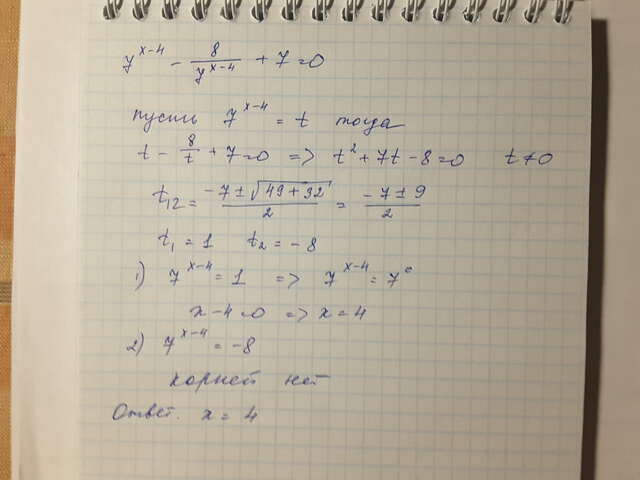 7^(x-4) - 8/7^(x-4) + 7 = 0
Пусть 7^(x-4) = t тогда
t - 8/t + 7 = 0 => t² + 7t - 8 = 0 t ≠ 0
t₁,₂ = (-7 ± √(49 + 32))/2 = (-7 ± 9)/2
t₁ = 1 t₂ = -8
1) 7^(x-4) = 1 => 7^(x-4) = 7⁰
x - 4 = 0 => x = 4
2) 7^(x-4) = -8
корней нет
Ответ. x = 4